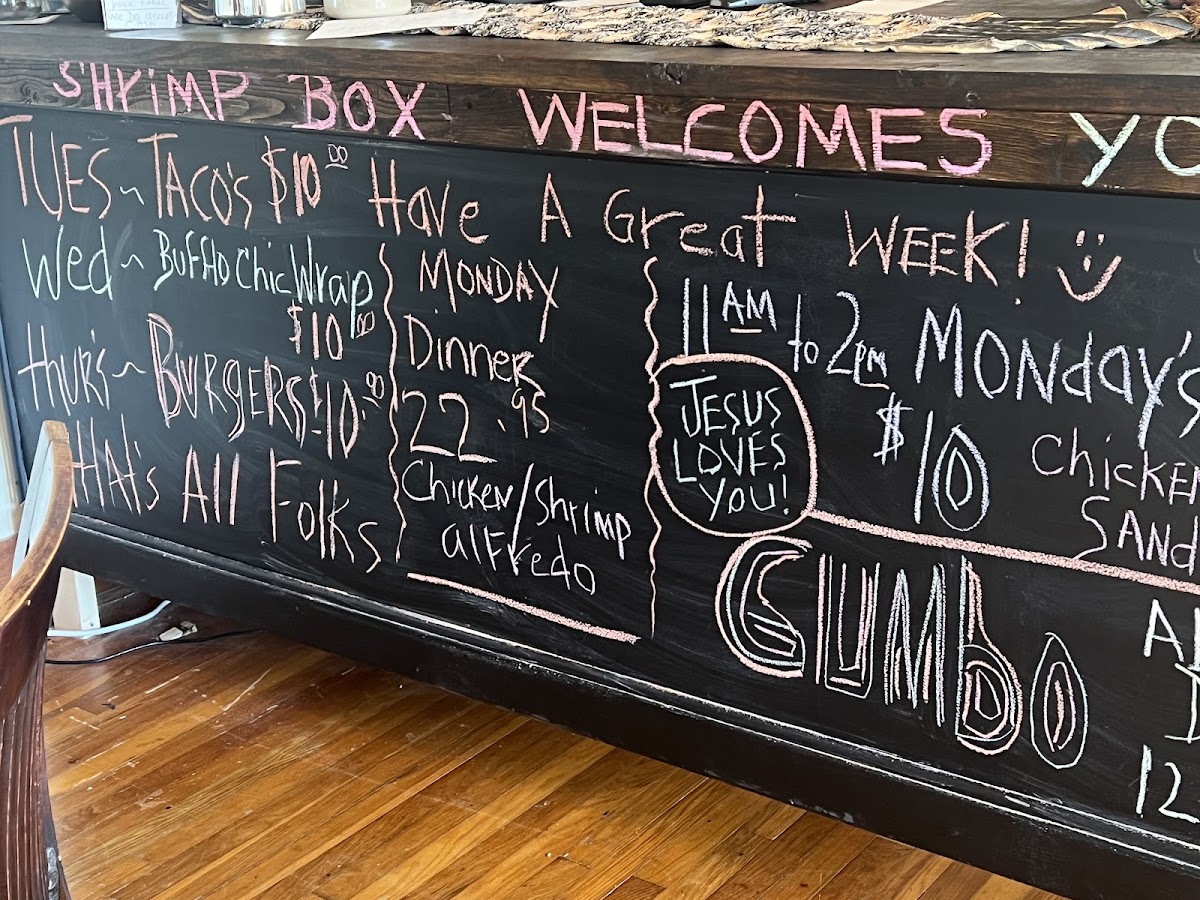 SHRIMP BOX WELCOMES YO
TUES ~ TACO'S $10.00
Have A Great WEEK!
Wed ~ BUFFLO Chic Wrap
$10.00
thur's ~ BURGERS $10.00
tHAt's All Folks
MONDAY
Dinner
22.95
Chicken/Shrimp
alFredo
11 AM to 2pm Monday's
$10
Chicken
SAND
JESUS
LOVES
YOU!
GUMBO
12